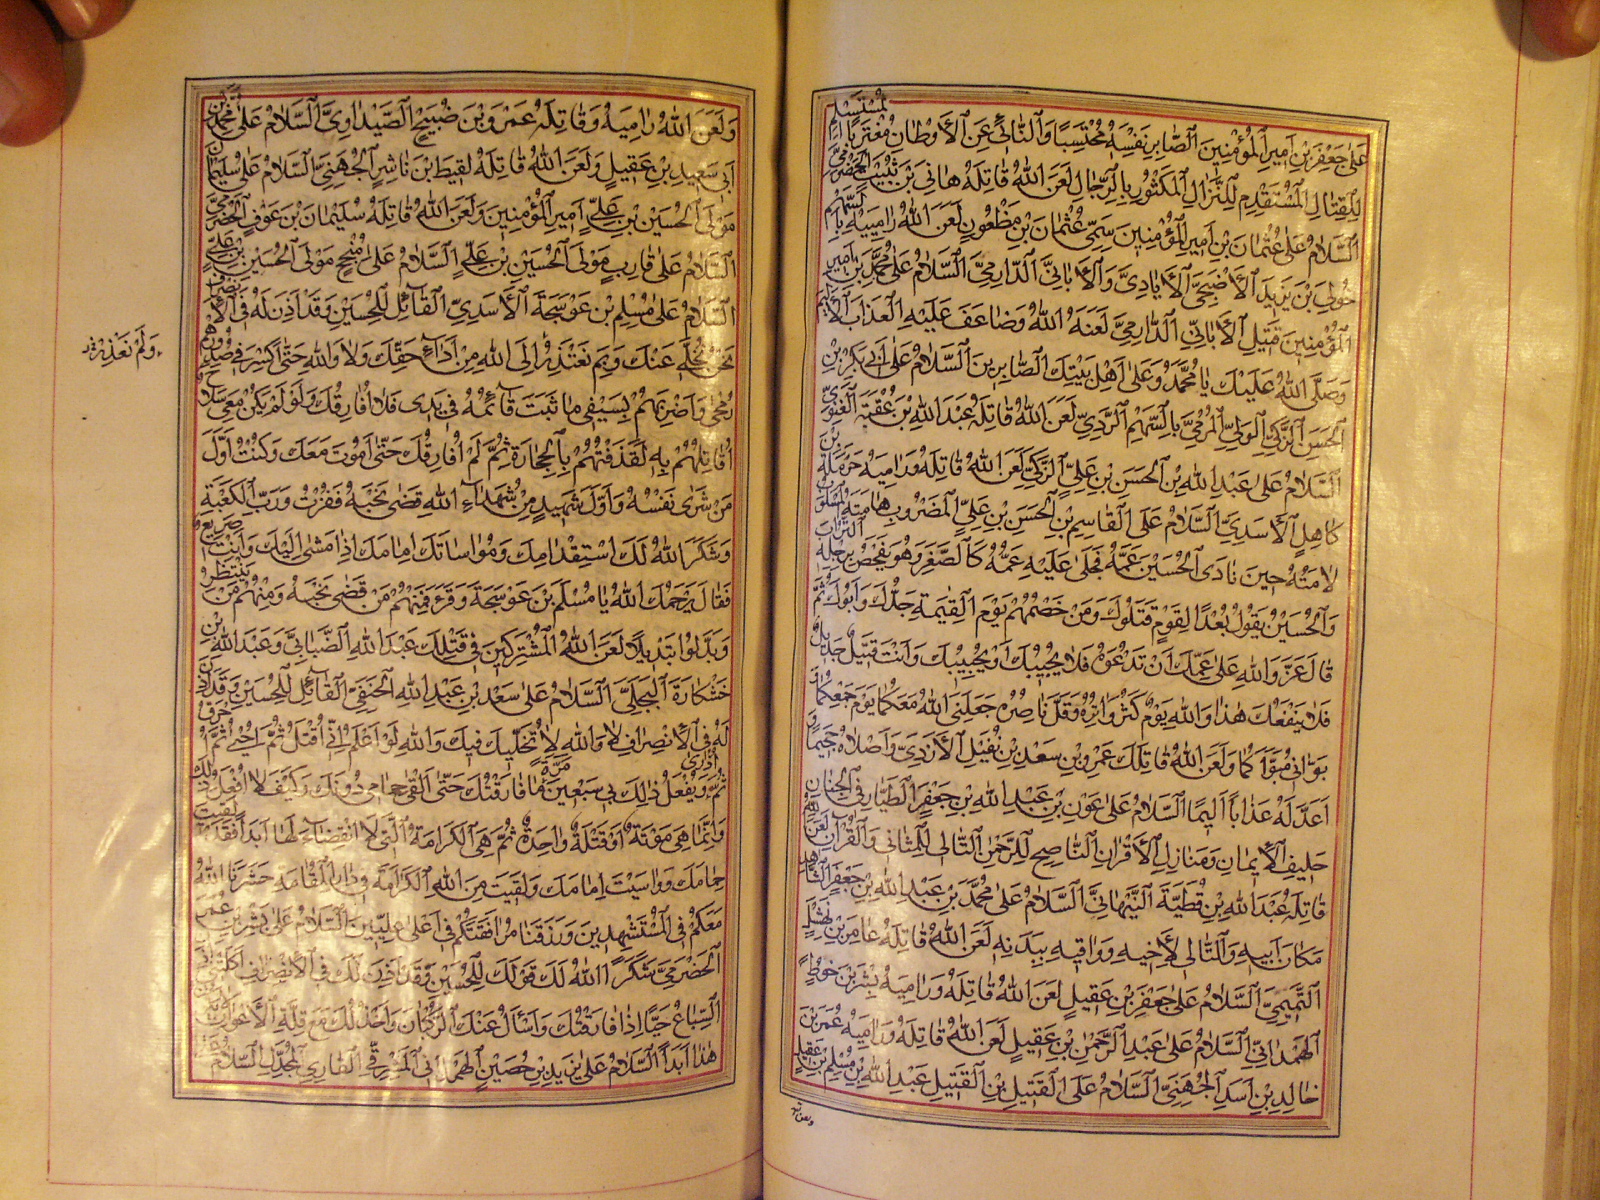 عَلىٰ جَعْفَرِ بْنِ اَمِيرِ الْمُؤْمِنِينَ الصَّابِرِ نَفْسَهُ مُحْتَسِبًا وَالنَّائِي عَنِ الْاَوْطَانِ مُغْتَرِبًا الْمُسْتَسْلِمِ
لِلْقِتٰالِ الْمُسْتَقْدِمِ لِلنِّزٰالِ الْمَكْثُورِ بِالرِّجٰالِ لَعَنَ اللهُ قٰاتِلَهُ هٰانِيَ بْنَ ثُبَيْتٍ الْحَضْرَمِيَّ
اَلسَّلٰامُ عَلىٰ عُثْمٰانَ بْنِ اَمِيرِ الْمُؤْمِنِينَ سَمِيِّ عُثْمٰانَ بْنِ مَظْعُونٍ لَعَنَ اللهُ رٰامِيَهُ بِالسَّهْمِ
خَوْلِيَ بْنَ يَزِيدَ الْاَصْبَحِيَّ الْاَيٰادِيَّ وَالْاَبٰانِيَّ الدّٰارِمِيَّ اَلسَّلٰامُ عَلىٰ مُحَمَّدِ بْنِ اَمِيرِ
الْمُؤْمِنِينَ قَتِيلِ الْاَبٰانِيِّ الدّٰارِمِيِّ لَعَنَهُ اللهُ وَضٰاعَفَ عَلَيْهِ الْعَذٰابَ الْاَلِيمَ
وَصَلَّى اللهُ عَلَيْكَ يٰا مُحَمَّدُ وَعَلىٰ اَهْلِ بَيْتِكَ الصّٰابِرِينَ اَلسَّلٰامُ عَلىٰ اَبِي بَكْرِ بْنِ
الْحَسَنِ الزَّكِيِّ الْوَلِيِّ الْمَرْمِيِّ بِالسَّهْمِ الرَّدِيِّ لَعَنَ اللهُ قٰاتِلَهُ عَبْدَ اللهِ بْنَ عُقْبَةَ الْغَنَوِيَّ
اَلسَّلٰامُ عَلىٰ عَبْدِ اللهِ بْنِ الْحَسَنِ بْنِ عَلِيٍّ الزَّكِيِّ لَعَنَ اللهُ قٰاتِلَهُ وَرٰامِيَهُ حَرْمَلَةَ بْنَ
كٰاهِلٍ الْاَسَدِيَّ اَلسَّلٰامُ عَلَى الْقٰاسِمِ بْنِ الْحَسَنِ بْنِ عَلِيٍّ الْمَضْرُوبِ هٰامَتُهُ الْمَسْلُوبِ
لٰامَتُهُ حِينَ نٰادَى الْحُسَيْنَ عَمَّهُ فَجَلىٰ عَلَيْهِ عَمُّهُ كَالصَّقْرِ وَهُوَ يَفْحَصُ بِرِجْلِهِ التُّرٰابَ
وَالْحُسَيْنُ يَقُولُ بُعْدًا لِقَوْمٍ قَتَلُوكَ وَمَنْ خَصْمُهُمْ يَوْمَ الْقِيٰمَةِ جَدُّكَ وَاَبُوكَ ثُمَّ
قٰالَ عَزَّ وَاللهِ عَلىٰ عَمِّكَ اَنْ تَدْعُوَهُ فَلٰا يُجِيبُكَ اَوْ يُجِيبُكَ وَاَنْتَ قَتِيلٌ جَدِيلٌ
فَلٰا يَنْفَعُكَ هٰذٰا وَاللهِ يَوْمٌ كَثُرَ وٰاتِرُهُ وَقَلَّ نٰاصِرُهُ جَعَلَنِيَ اللهُ مَعَكُمٰا يَوْمَ جَمْعِكُمٰا وَ
بَوَّاَنِي مُبَوَّاَكُمٰا وَلَعَنَ اللهُ قٰاتِلَكَ عَمْرَو بْنَ سَعْدِ بْنِ نُفَيْلٍ الْاَزْدِيَّ وَاَصْلٰاهُ جَحِيمًا وَ
اَعَدَّ لَهُ عَذٰابًا اَلِيمًا اَلسَّلٰامُ عَلىٰ عَوْنِ بْنِ عَبْدِ اللهِ بْنِ جَعْفَرٍ الطَّيّٰارِ فِي الْجِنٰانِ
حَلِيفِ الْاِيمٰانِ وَمُنٰازِلِ الْاَقْرٰانِ النّٰاصِحِ لِلرَّحْمٰنِ التّٰالِي لِلْمَثٰانِي وَالْقُرْاٰنِ لَعَنَ اللهُ
قٰاتِلَهُ عَبْدَ اللهِ بْنَ قُطَيَّةَ النَّبْهٰانِيَّ اَلسَّلٰامُ عَلىٰ مُحَمَّدِ بْنِ عَبْدِ اللهِ بْنِ جَعْفَرٍ الشّٰاهِدِ
مَكٰانَ اَبِيهِ وَالتّٰالِي لِاَخِيهِ وَوٰاقِيهِ بِبَدَنِهِ لَعَنَ اللهُ قٰاتِلَهُ عٰامِرَ بْنَ نَهْشَلٍ
التَّمِيمِيَّ اَلسَّلٰامُ عَلىٰ جَعْفَرِ بْنِ عَقِيلٍ لَعَنَ اللهُ قٰاتِلَهُ وَرٰامِيَهُ بِشْرَ بْنَ خَوْطٍ
الْهَمْدٰانِيَّ اَلسَّلٰامُ عَلىٰ عَبْدِ الرَّحْمٰنِ بْنِ عَقِيلٍ لَعَنَ اللهُ قٰاتِلَهُ وَرٰامِيَهُ عُمَرَ بْنَ
خٰالِدِ بْنِ اَسَدٍ الْجُهَنِيَّ اَلسَّلٰامُ عَلَى الْقَتِيلِ بْنِ الْقَتِيلِ عَبْدِ اللهِ بْنِ مُسْلِمِ بْنِ عَقِيلٍ
وَلَعَنَ اللهُ رٰامِيَهُ وَقٰاتِلَهُ عَمْرَو بْنَ صُبَيْحٍ الصَّيْدٰاوِيَّ اَلسَّلٰامُ عَلىٰ مُحَمَّدِ بْنِ
اَبِي سَعِيدِ بْنِ عَقِيلٍ وَلَعَنَ اللهُ قٰاتِلَهُ لَقِيطَ بْنَ نٰاشِرٍ الْجُهَنِيَّ اَلسَّلٰامُ عَلىٰ سُلَيْمٰانَ
مَوْلَى الْحُسَيْنِ بْنِ عَلِيٍّ اَمِيرِ الْمُؤْمِنِينَ وَلَعَنَ اللهُ قٰاتِلَهُ سُلَيْمٰانَ بْنَ عَوْفٍ الْحَضْرَمِيَّ
اَلسَّلٰامُ عَلىٰ قٰارِبٍ مَوْلَى الْحُسَيْنِ بْنِ عَلِيٍّ اَلسَّلٰامُ عَلىٰ مُنْجِحٍ مَوْلَى الْحُسَيْنِ بْنِ عَلِيٍّ
اَلسَّلٰامُ عَلىٰ مُسْلِمِ بْنِ عَوْسَجَةَ الْاَسَدِيِّ الْقٰائِلِ لِلْحُسَيْنِ وَقَدْ اَذِنَ لَهُ فِي الْاِنْصِرٰافِ
نَحْنُ نُخَلِّي عَنْكَ وَبِمَ نَعْتَذِرُ اِلَى اللهِ مِنْ اَدٰاءِ حَقِّكَ وَلٰا وَاللهِ حَتّٰى اَكْسِرَ فِي صُدُورِهِمْ
وَلَمْ نَعْذِرْ
رُمْحِي وَاَضْرِبَهُمْ بِسَيْفِي مٰا ثَبَتَ قٰائِمُهُ فِي يَدِي فَلٰا اُفٰارِقُكَ وَلَوْ لَمْ يَكُنْ مَعِي سِلٰاحٌ
اُقٰاتِلُهُمْ بِهِ لَقَذَفْتُهُمْ بِالْحِجٰارَةِ ثُمَّ لَمْ اُفٰارِقْكَ حَتّٰى اَمُوتَ مَعَكَ وَكُنْتَ اَوَّلَ
مَنْ شَرٰى نَفْسَهُ وَاَوَّلَ شَهِيدٍ مِنْ شُهَدٰاءِ اللهِ قَضٰى نَحْبَهُ فَفُزْتَ وَرَبِّ الْكَعْبَةِ
وَشَكَرَ اللهُ لَكَ اسْتِقْدٰامَكَ وَمُوٰاسٰاتَكَ اِمٰامَكَ اِذْ مَشٰى اِلَيْكَ وَاَنْتَ صَرِيعٌ
فَقٰالَ يَرْحَمُكَ اللهُ يٰا مُسْلِمَ بْنَ عَوْسَجَةَ وَقَرَءَ فَمِنْهُمْ مَنْ قَضٰى نَحْبَهُ وَمِنْهُمْ مَنْ يَنْتَظِرُ
وَبَدَّلُوا تَبْدِيلًا لَعَنَ اللهُ الْمُشْتَرِكِينَ فِي قَتْلِكَ عَبْدَ اللهِ الضَّبٰابِيَّ وَعَبْدَ اللهِ بْنَ
خَشْكٰارَةَ الْبَجَلِيَّ اَلسَّلٰامُ عَلىٰ سَعْدِ بْنِ عَبْدِ اللهِ الْحَنَفِيِّ الْقٰائِلِ لِلْحُسَيْنِ وَقَدْ اَذِنَ
لَهُ فِي الْاِنْصِرٰافِ لٰا وَاللهِ لٰا نُخَلِّيكَ وَاللهِ لَوْ اَعْلَمُ اَنِّي اُقْتَلُ ثُمَّ اُحْيٰى ثُمَّ اُحْرَقُ
ثُمَّ اُذْرٰى وَيُفْعَلُ ذٰلِكَ بِي سَبْعِينَ مَرَّةً مٰا فٰارَقْتُكَ حَتّٰى اَلْقٰى حِمٰامِي دُونَكَ وَكَيْفَ لٰا اَفْعَلُ ذٰلِكَ
وَاِنَّمٰا هِيَ مَوْتَةٌ اَوْ قَتْلَةٌ وٰاحِدَةٌ ثُمَّ هِيَ الْكَرٰامَةُ الَّتِي لَا انْقِضٰاءَ لَهٰا اَبَدًا فَقَدْ لَقِيتَ
حِمٰامَكَ وَوٰاسَيْتَ اِمٰامَكَ وَلَقِيتَ مِنَ اللهِ الْكَرٰامَةَ فِي دٰارِ الْمُقٰامَةِ حَشَرَنَا اللهُ
مَعَكُمْ فِي الْمُسْتَشْهَدِينَ وَرَزَقَنٰا مُرٰافَقَتَكُمْ فِي اَعْلىٰ عِلِّيِّينَ اَلسَّلٰامُ عَلىٰ بِشْرِ بْنِ عُمَرَ
الْحَضْرَمِيِّ شَكَرَ اللهُ لَكَ قَوْلَكَ لِلْحُسَيْنِ وَقَدْ اَذِنَ لَكَ فِي الْاِنْصِرٰافِ اَكَلَتْنِي
السِّبٰاعُ حَيًّا اِذٰا فٰارَقْتُكَ وَاَسْاَلُ عَنْكَ الرُّكْبٰانَ وَاَخْذُلُكَ مَعَ قِلَّةِ الْاَعْوٰانِ
هٰذٰا اَبَدًا اَلسَّلٰامُ عَلىٰ يَزِيدَ بْنِ حُصَيْنٍ الْهَمْدٰانِيِّ الْمَشْرِقِيِّ الْقٰارِي الْمُجَدَّلِ اَلسَّلٰامُ